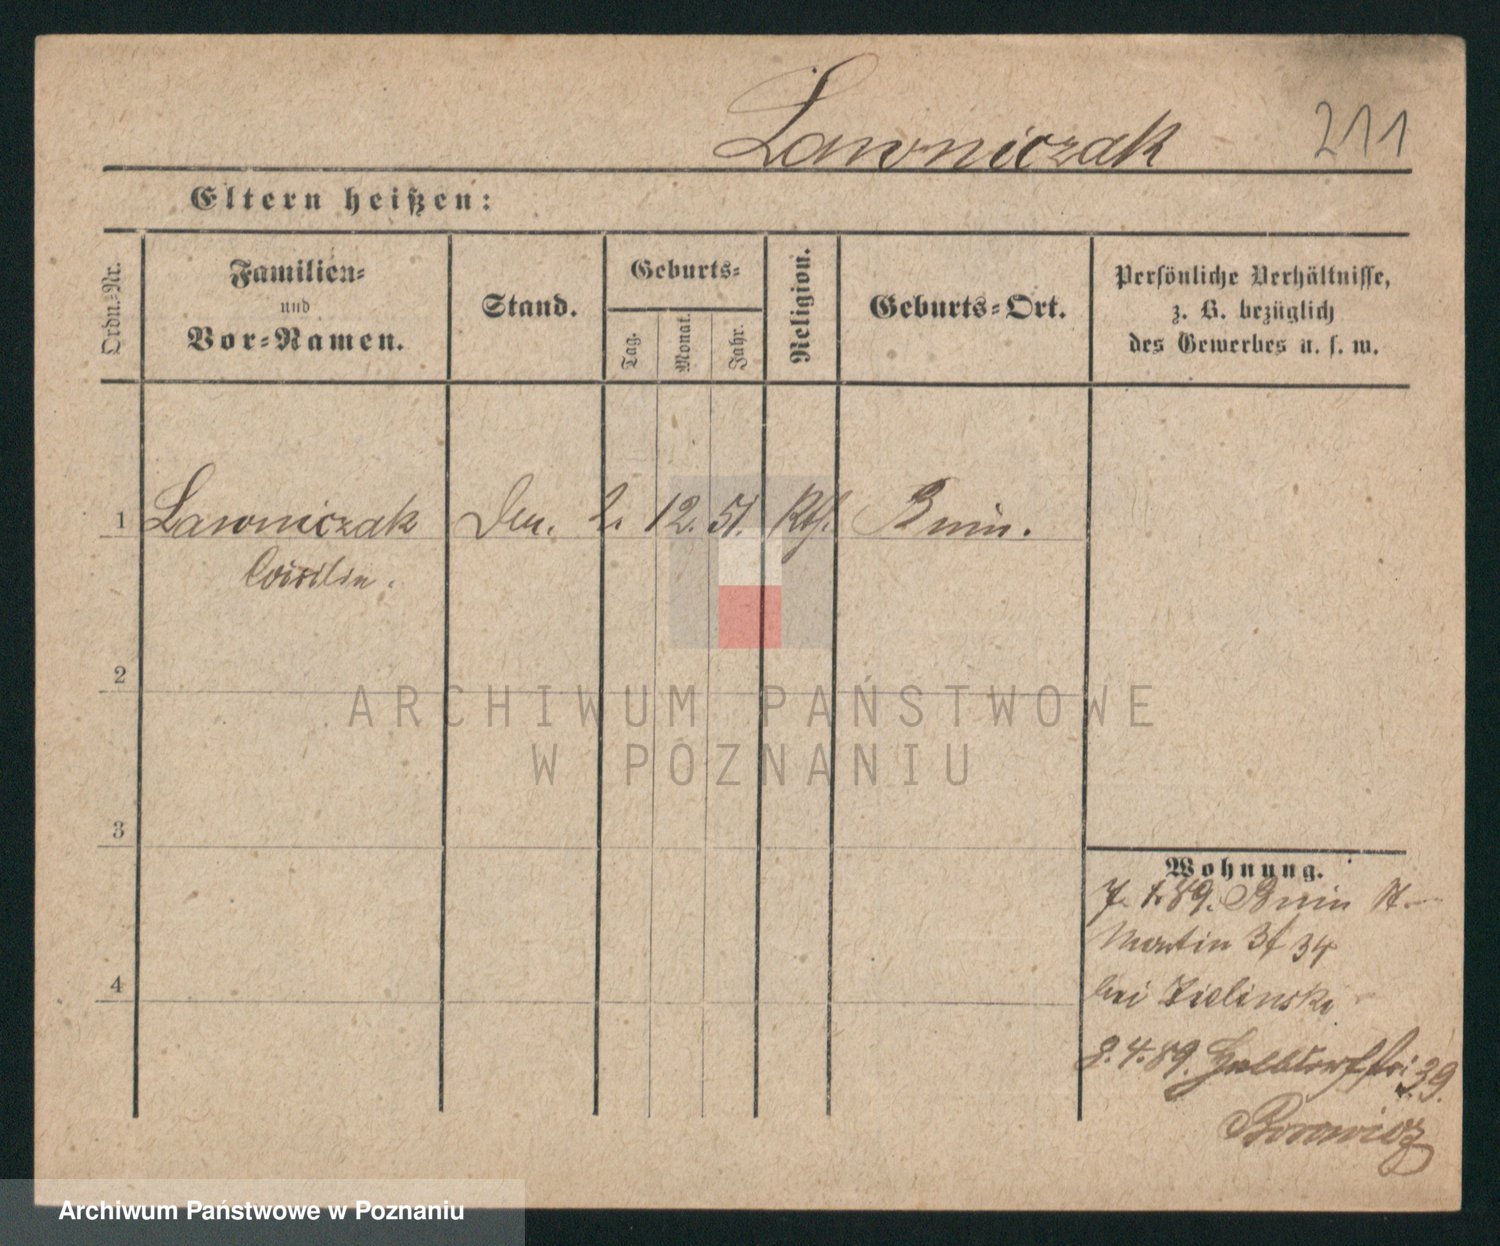 Lawniczak 211
Eltern heißen:
Ordn.-Nr.
Familien-
und
Vor-Namen.
Stand.
Geburts-
Tag.
Monat.
Jahr.
Religion.
Geburts-Ort.
Persönliche Verhältnisse,
z. B. bezüglich
des Gewerbes u. s. w.
1 Lawniczak 2. 12. 51. Kth. Bnin.
2
3
4
Wohnung.
7. 1. 89. Bnin St.
Martin 34
bei Zielinski
8. 4. 89. Halbdorf 39.
ARCHIWUM PAŃSTWOWE
W POZNANIU
Archiwum Państwowe w Poznaniu